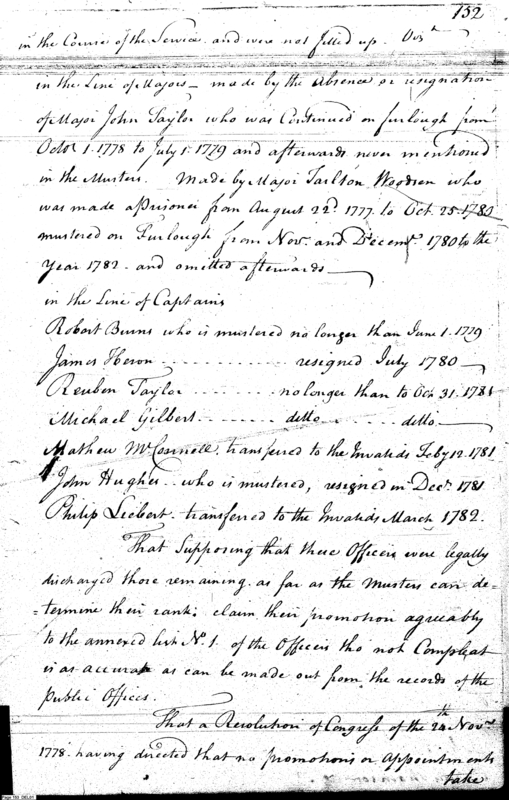 132
in the Course of the Service. and were not filled up. Viz.t
in the Line of Majors – made by the absence or resignation
of Major John Taylor who was Continued on furlough from
Octo.r 1. 1778 to July 1. 1779 and afterwards never mentioned
in the Musters. Made by Major Tarlton Woodson who
was made a Prisoner from August 22.d 1777. to Oct. 25. 1780
mustered on Furlough from Nov.r and Decem.r 1780 to the
Year 1782. and omitted afterwards
in the Line of Captains
Robert Burns who is mustered no longer than June 1. 1779
James Heron . . . . . . . . . . . . . . resigned July 1780
Reuben Taylor . . . . . . . . . no longer than to Oct. 31. 1781
Michael Gilbert . . . . . . . . ditto . . . . . . . . . ditto
Mathew McConnell. transferred to the Invalids Feby 12. 1781
John Hughes.. who is mustered, resigned in Dec.r 1781
Philip Liebert. transferred to the Invalids March 1782.
That Supposing that these Officers were legally
discharged those remaining. as far as the Musters can de-
=termine their rank; claim their promotion agreeably
to the annexed list No. 1. of the Officers tho not Compleat
is as accurate as can be made out from the records of the
Public Offices.
That a Resolution of Congress of the 24th Nov.r
1778. having directed that no promotions or Appointments
take